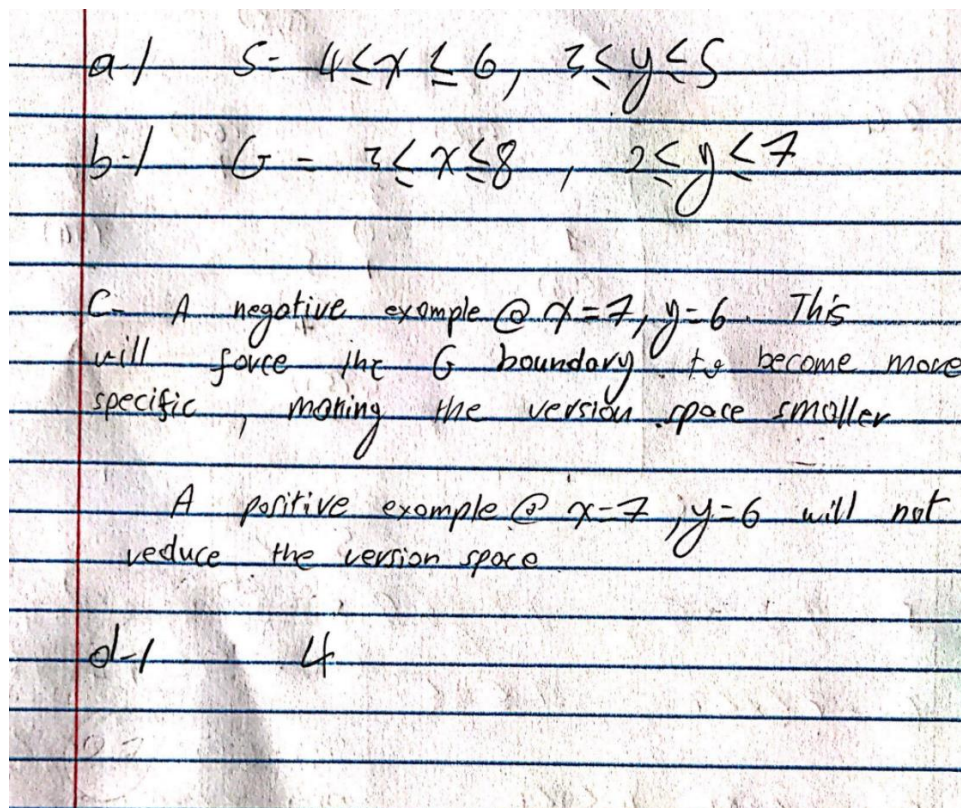 a-) S= 4≤x≤6, 3≤y≤5
b-) G= 3≤x≤8, 2≤y≤7
C- A negative example @ x=7, y=6. This
will force the G boundary to become more
specific, making the version space smaller
A positive example @ x=7, y=6 will not
reduce the version space
d-) 4